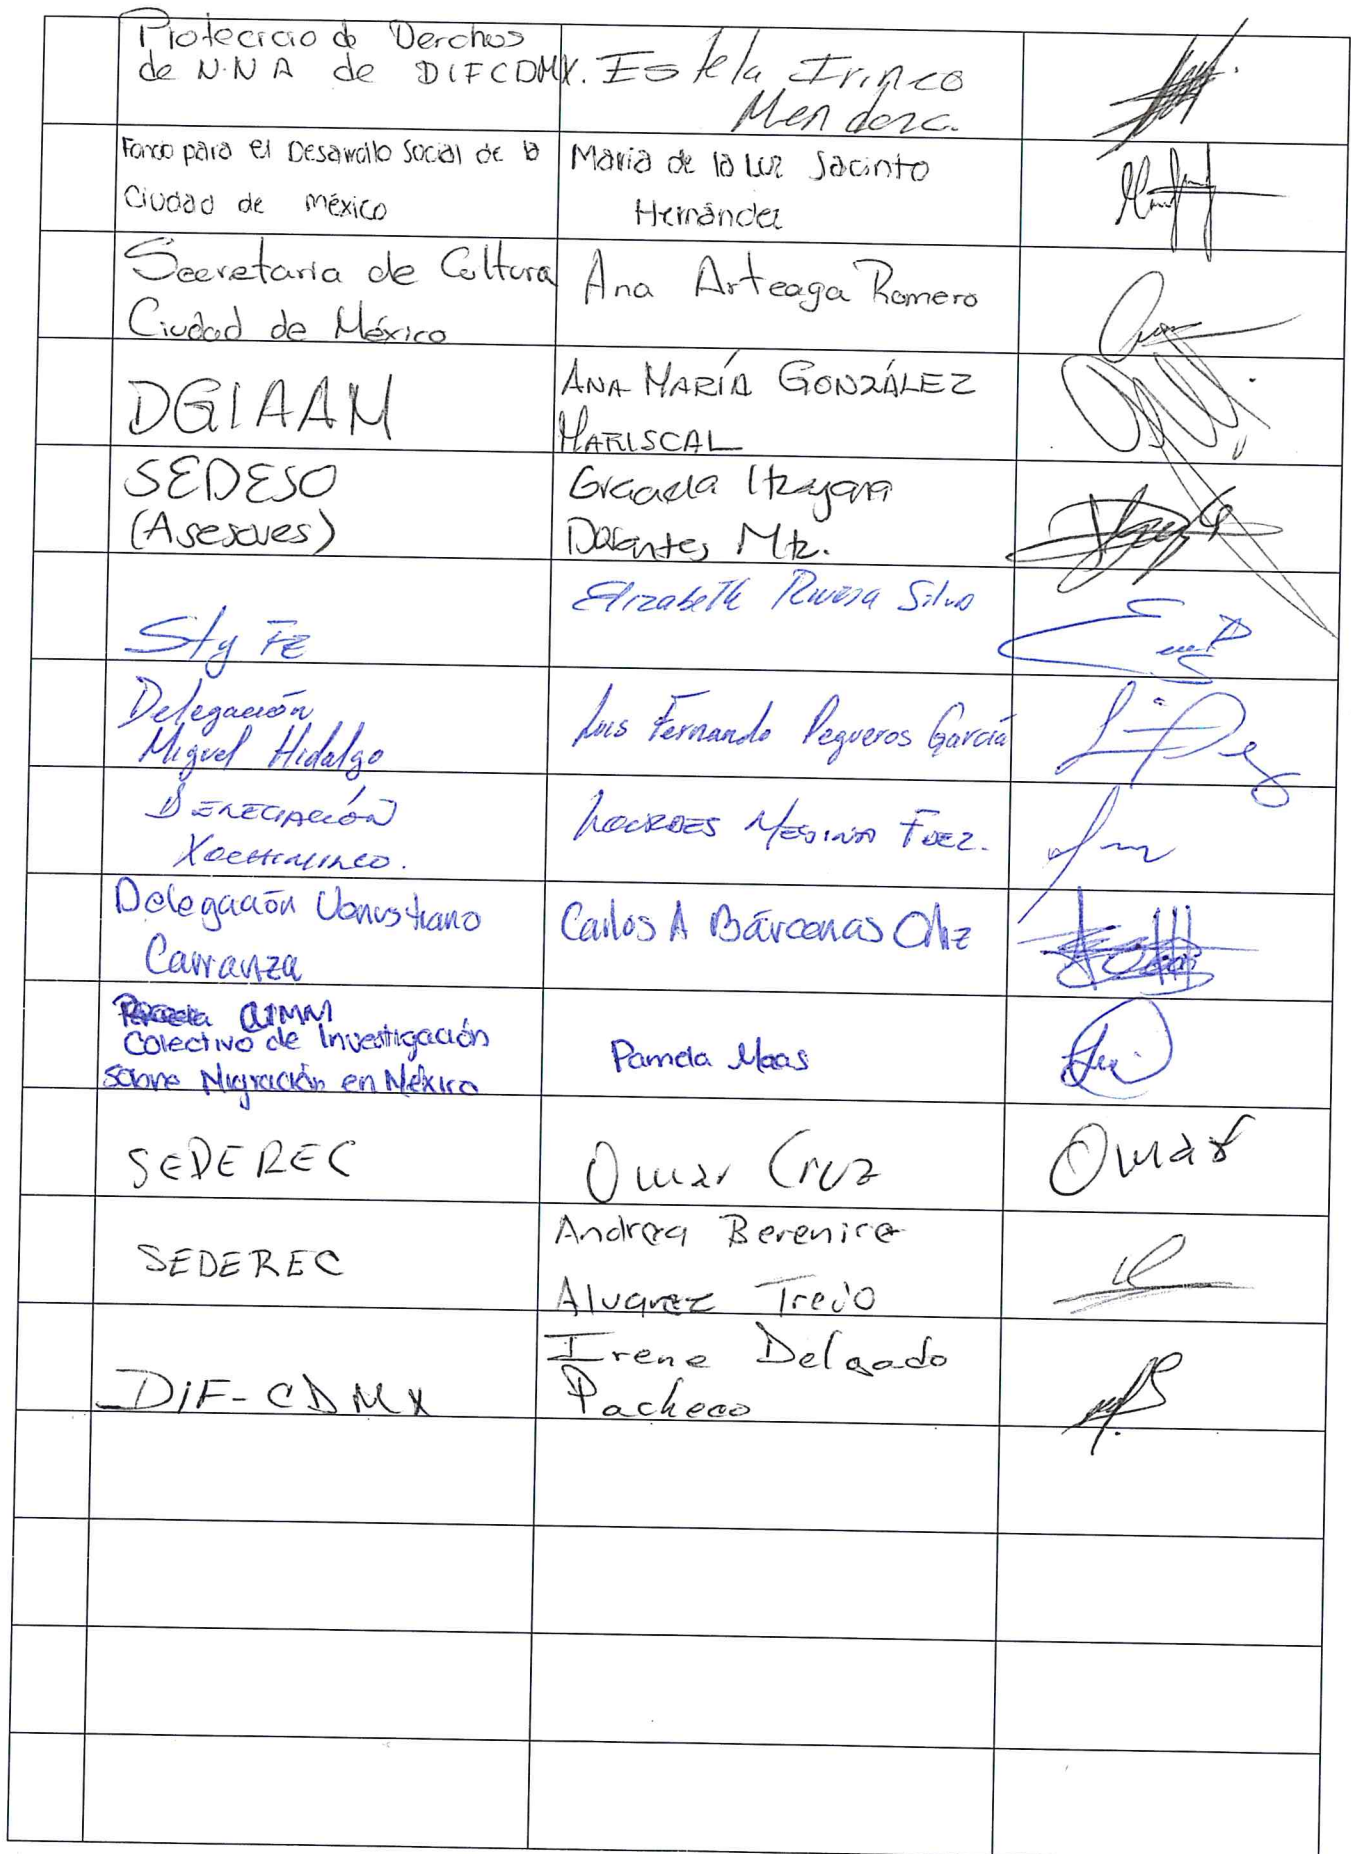 Proteccio de Derchos
de N.N A de DIFCDMX.
Estela Irineo
Mendoza.
Fondo para el Desarrollo Social de la
Ciudad de méxico
Maria de la Luz Jacinto
Hernández
Secretaria de Cultura
Ciudad de México
Ana Arteaga Romero
DGIAAM
ANA MARÍA GONZÁLEZ
MARISCAL
SEDESO
(Asesores)
Graciela Itzayana
Dorantes Mtz.
Sty FE
Elizabeth Rivera Silva
Delegación
Miguel Hidalgo
Luis Fernando Pegueros García
DELEGACIÓN
XOCHIMILCO.
LOURDES MEDINA FDEZ.
Delegación Venustiano
Carranza
Carlos A Bárcenas
CIMM
Colectivo de Investigación
sobre Migración en México
Pamela Maas
SEDEREC
Omar Cruz
Omar
SEDEREC
Andrea Berenice
Alvarez Trejo
DIF-CDMX
Irene Delgado
Pacheco